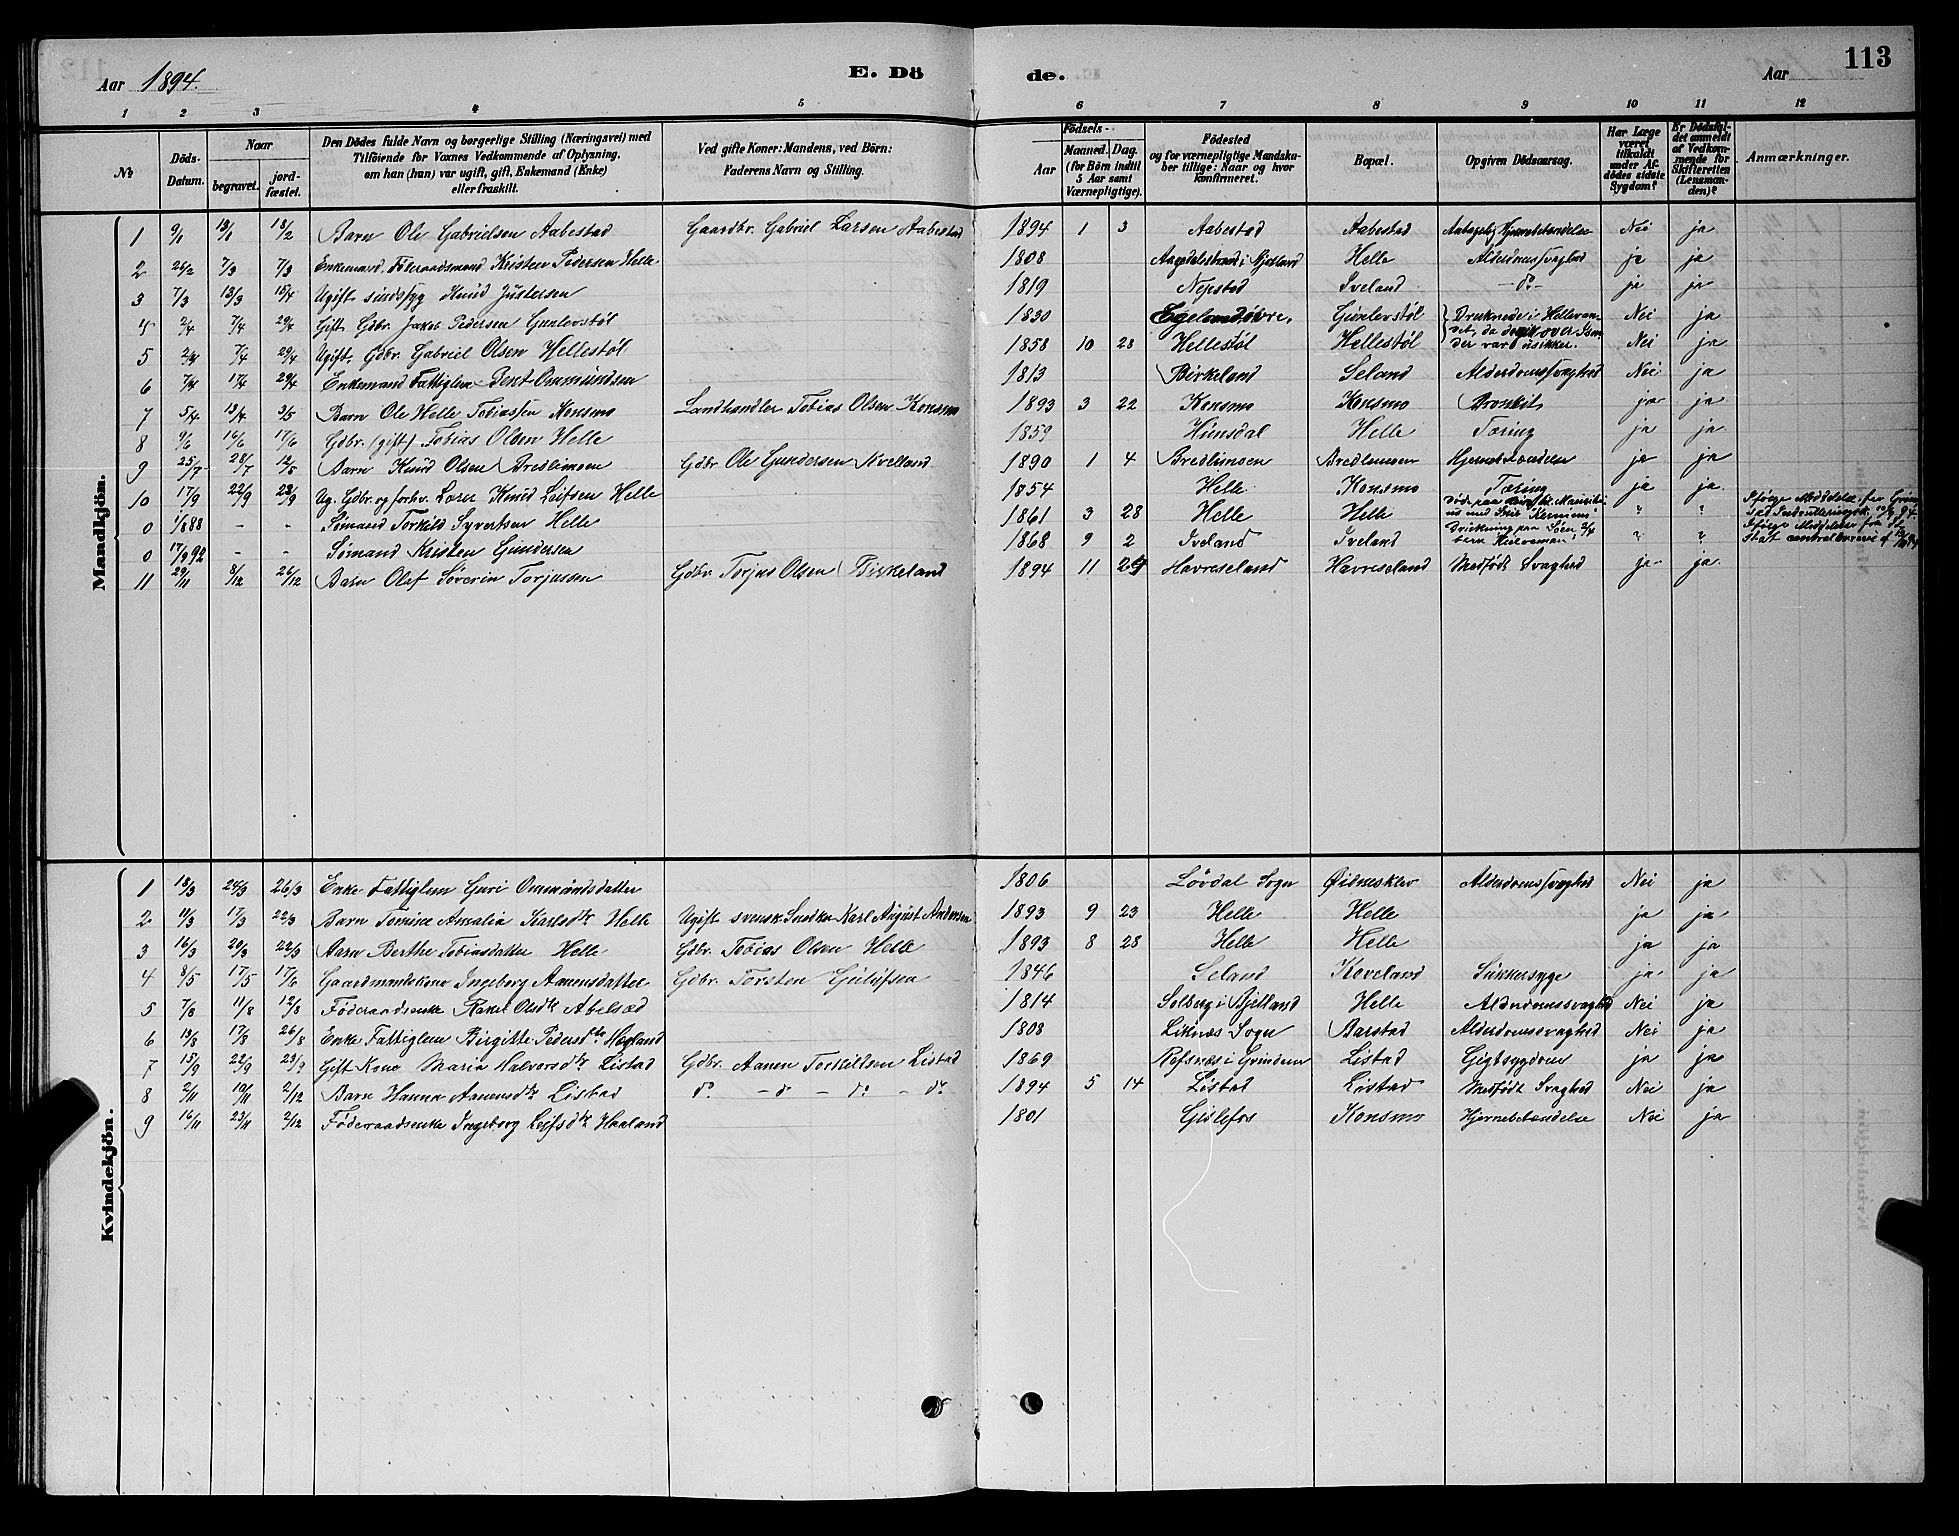 Aar 1894. E. Dö de. Aar 113
1 2 3 4 5 6 7 8 9 10 11 12
No
Döds-Datum.
Naar
begravet. jord-fæstet.
Den Dödes fulde Navn og borgerlige Stilling (Næringsvei) med
Tilföiende for Voxnes Vedkommende af Oplysning,
om han (hun) var ugift, gift, Enkemand (Enke)
eller fraskilt.
Ved gifte Koner: Mandens, ved Börn:
Faderens Navn og Stilling.
Födsels-
Aar
Maaned. Dag.
(for Börn indtil
5 Aar samt
Værnepligtige).
Födested
og for værnepligtige Mandska-
ber tillige: Naar og hvor
konfirmeret.
Bopæl.
Opgiven Dödsaarsag.
Har Læge
været
tilkaldt
under Af-
dödes sidste
Sygdom?
Er Dödsfal-
det anmeldt
af Vedkom-
mende for
Skifteretten
(Lensman-
den)?
Anmærkninger.
Mandkjön.
1 9/1 13/1 18/2 Barn Ole Gabrielsen Aabestad Gaardbr. Gabriel Larsen Aabestad 1894 1 3 Aabestad Aabestad Nei ja
2 26/2 7/3 7/3 Enkemand Föderaadsmand Kristen Pedersen Helle 1808 Helle Alderdomssvaghed ja ja
3 7/3 13/3 15/4 Ugift sindssyg Knud Justersen 1819 Iveland - do - ja ja
4 2/4 7/4 29/4 Gift Gdbr. Jakob Pedersen Gunlevstöl 1830 Egeland övre, Gunlevstöl Druknede i Hellevan- Nei ja
5 2/4 7/4 29/4 Ugift Gdbr. Gabriel Olsen Hellestöl 1858 10 28 Hellestöl Hellestöl der var usikker. Nei ja
6 7/4 17/4 29/4 Enkemand Fattiglem Bent Ommundsen 1813 Birkeland Seland Alderdomssvaghed Nei ja
7 5/4 13/4 3/5 Barn Ole Helle Tobiassen Konsmo Landhandler Tobias Olsen Konsmo 1893 3 22 Konsmo Konsmo Bronkit ja ja
8 9/6 16/6 17/6 Gdbr. (gift) Tobias Olsen Helle 1859 Hunsdal Helle Tæring ja ja
9 25/7 28/7 12/8 Barn Knud Olsen Bredlimoen Gdbr. Ole Gundersen Kvelland 1890 1 4 Bredlimoen Bredlimoen Hjernebetændelse ja ja
10 17/9 22/9 23/9 Ug. Gdbr. og forhv. Lærer Knud Leifsen Helle 1854 Helle Konsmo Tæring ja ja
0 1/8 88 - - Sömand Torkild Syvertsen Helle 1861 3 28 Helle Helle " "
0 17/9 92 - - Sömand Kristen Gundersen 1868 9 2 Iveland Iveland " "
11 29/11 8/12 26/12 Barn Olef Söverin Torjussen Gdbr. Torjus Olsen Birkeland 1894 11 29 Havreseland Havreseland Medfödt Svaghed ja ja
Kvindekjön.
1 18/3 24/3 26/3 Enke Fattiglem Guri Ommundsdatter 1806 Lövdal Sogn Öidnesklev Alderdomssvaghed Nei ja
2 11/3 17/3 22/3 Barn Tomine Amalia Karlsdtr Helle Ugift svensk Snedker Karl August Andersen 1893 9 23 Helle Helle ja ja
3 16/3 20/3 22/3 Barn Berthe Tobiasdatter Helle Gdbr. Tobias Olsen Helle 1893 8 28 Helle Helle ja ja
4 8/5 17/5 17/6 Gaardmandskone Ingeborg Aanensdatter Gdbr. Torsten Gjulufsen 1846 Seland Koveland Sukkersyge ja ja
5 7/8 11/8 12/8 Föderaadsenke Rakel Olsdtr Abelsæd 1814 Solberg i Bjelland Helle Alderdomssvaghed Nei ja
6 13/8 17/8 26/8 Enke Fattiglem Birgitte Pedersdtr Högland 1808 Liknes Sogn Barstad Alderdomssvaghed Nei ja
7 15/9 22/9 23/9 Gift Kone Maria Halvorsdtr Listad Gdbr. Aanen Torkildsen Listad 1869 Refsnes i Grindem Listad Gigtsygdom ja ja
8 2/11 10/11 2/12 Barn Hanna Aanensdtr Listad do - do - do - do 1894 5 14 Listad Listad Medfödt Svaghed Nei ja
9 16/11 23/11 2/12 Föderaadsenke Ingeborg Leifsdtr Haaland 1801 Gislefos Konsmo Hjernebetændelse Nei ja